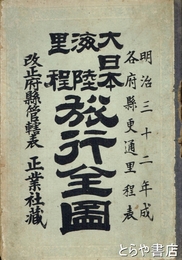 明治三十二年成
各府縣更通里程表
大日本
海陸
里程
旅行全圖
改正府縣管轄表
正業社藏
とらや書房